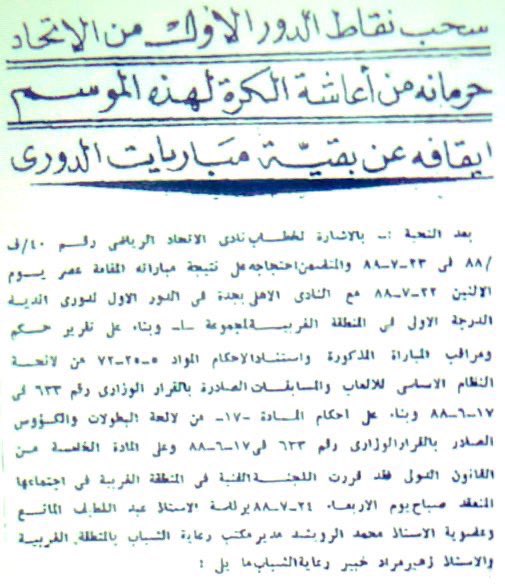 سحب نقاط الدور الأول من الاتحاد
حرمانه من أعاشة الكرة لهذه الموسم
ايقافه عن بقية مباريات الدورى
بعد التحية :ـ بالاشارة لخطاب نادى الاتحاد الرياضى رقم ٤٠/ف
/٨٨ فى ٢٣-٧-٨٨ والمتضمن احتجاجه على نتيجة مباراته المقامة عصر يوم
الاثنين ٢٢-٧-٨٨ مع النادى الاهلى بجدة فى الدور الاول لدورى اندية
الدرجة الاولى فى المنطقة الغربية لمجموعة -أ- وبناء على تقرير حكم
ومراقب المباراة المذكورة واستنادا لاحكام المواد ٥-٢٥-٧٢ من لائحة
النظام الاساسى للالعاب والمسابقات الصادرة بالقرار الوزارى رقم ٦٣٣ فى
١٧-٦-٨٨ وبناء على احكام المادة -١٧- من لائحة البطولات والكؤوس
الصادر بالقرار الوزارى رقم ٦٢٣ فى ١٧-٦-٨٨ وعلى المادة الخامسة من
القانون الدولى فقد قررت اللجنة الفنية فى المنطقة الغربية فى اجتماعها
المنعقد صباح يوم الاربعاء ٢٤-٧-٨٨ برئاسة الاستاذ عبد اللطيف المانع
وعضوية الاستاذ محمد الرويشد مدير مكتب رعاية الشباب بالمنطقة الغربية
والاستاذ زهير مراد خبير رعاية الشباب ما يلى :